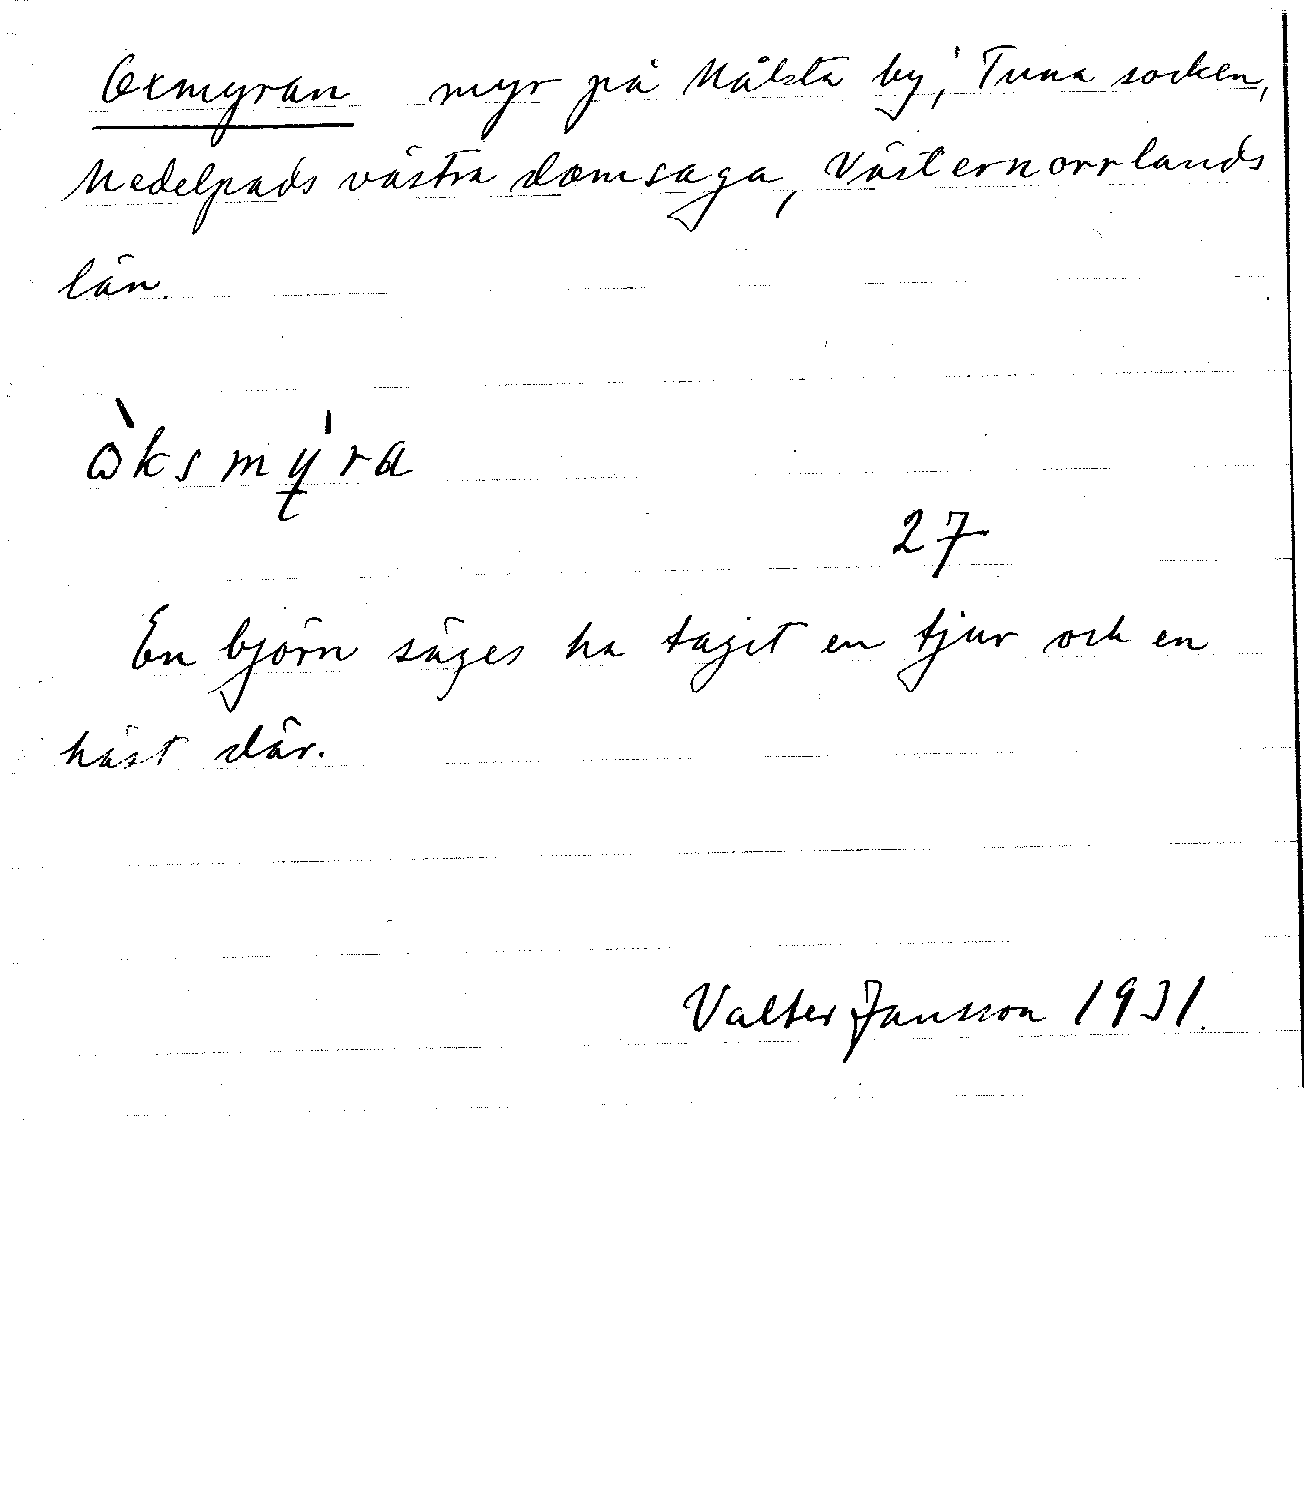 Oxmyran myr på Målsta by, Tuna socken,
Medelpads västra domsaga, Västernorrlands
län.
ὼksmy̵̍ra
27
En björn säges ha taget en tjur och en
häst där.
Valter Jansson 1931.